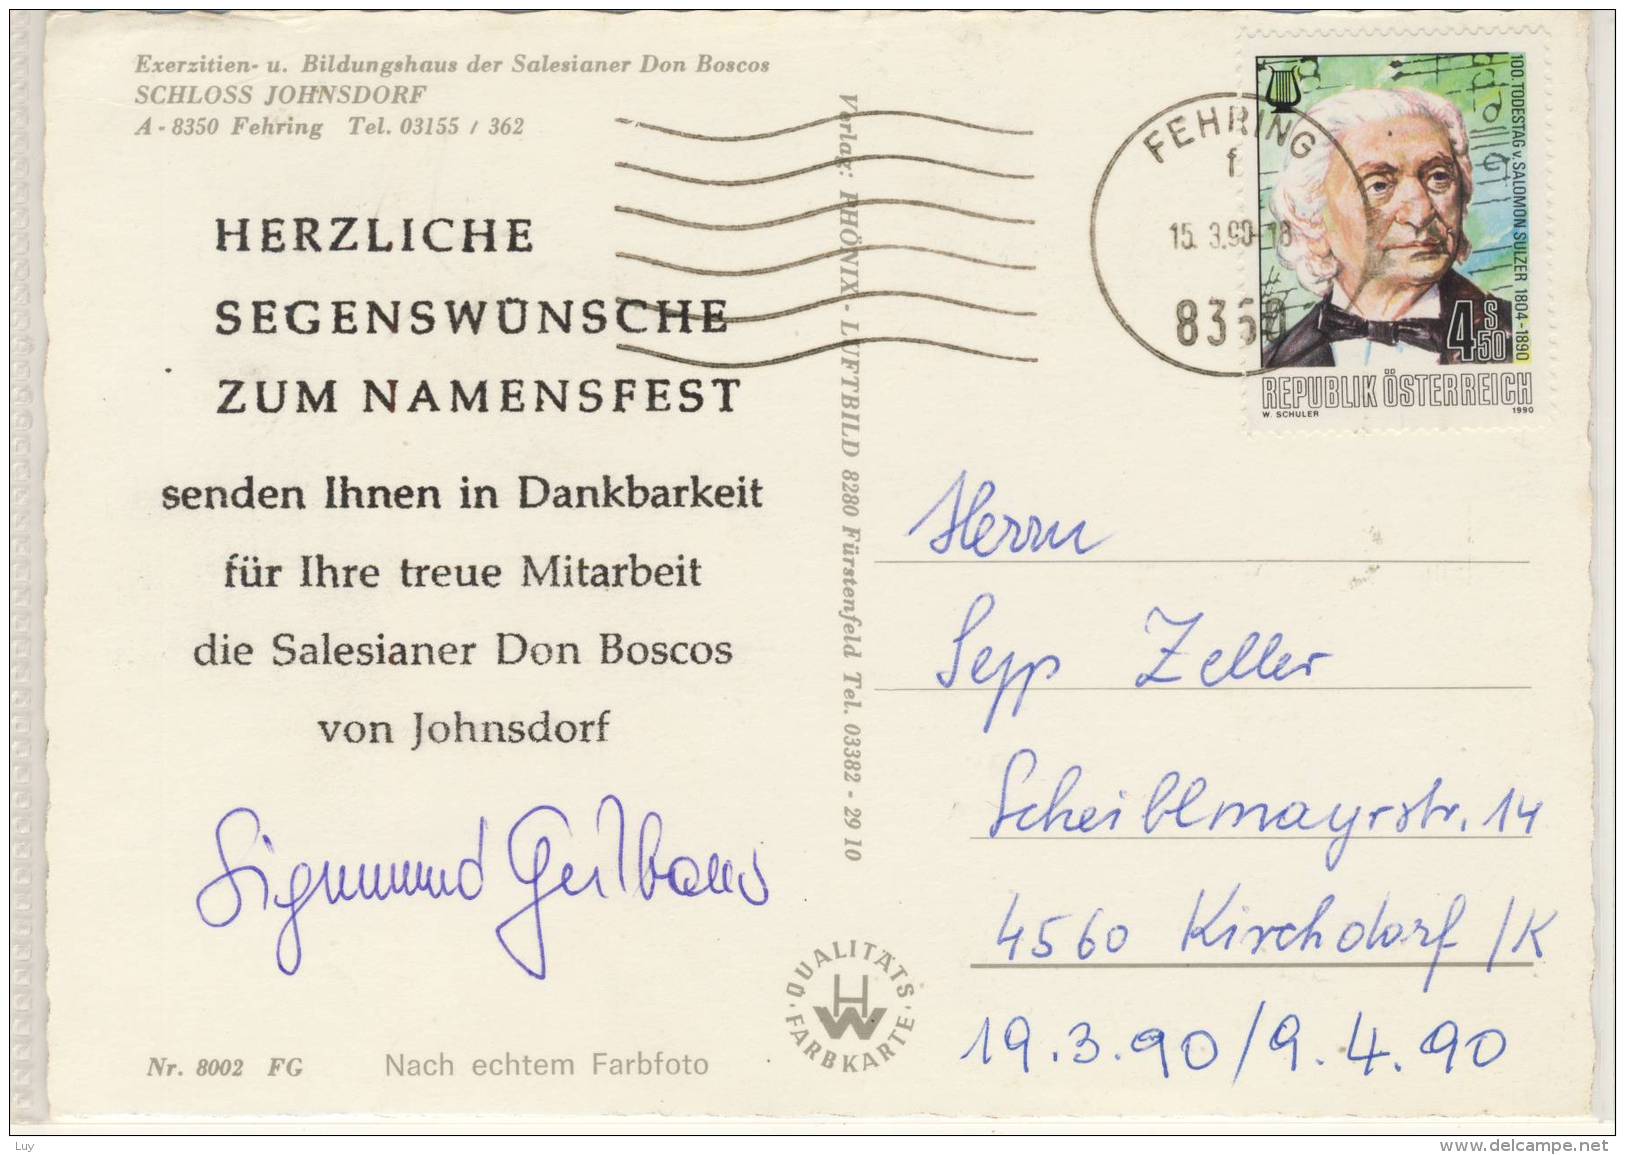 Exerzitien- u. Bildungshaus der Salesianer Don Boscos
SCHLOSS JOHNSDORF
A - 8350 Fehring Tel. 03155 / 362
HERZLICHE
SEGENSWÜNSCHE
ZUM NAMENSFEST
senden Ihnen in Dankbarkeit
für Ihre treue Mitarbeit
die Salesianer Don Boscos
von Johnsdorf
Sigmund
Nr. 8002 FG
Nach echtem Farbfoto
Verlag: PHÖNIX - LUFTBILD 8280 Fürstenfeld Tel. 03382 - 29 10
QUALITÄTS
FARBKARTE
HW
FEHRING
f
15. 3.90-18
8350
100. TODESTAG v. SALOMON SULZER 1804-1890
4 S 50
REPUBLIK ÖSTERREICH
W. SCHULER 1990
Herrn
Sepp Zeller
Scheiblmayrstr. 14
4560 Kirchdorf /K
19.3.90/9.4.90
Luy
www.delcampe.net